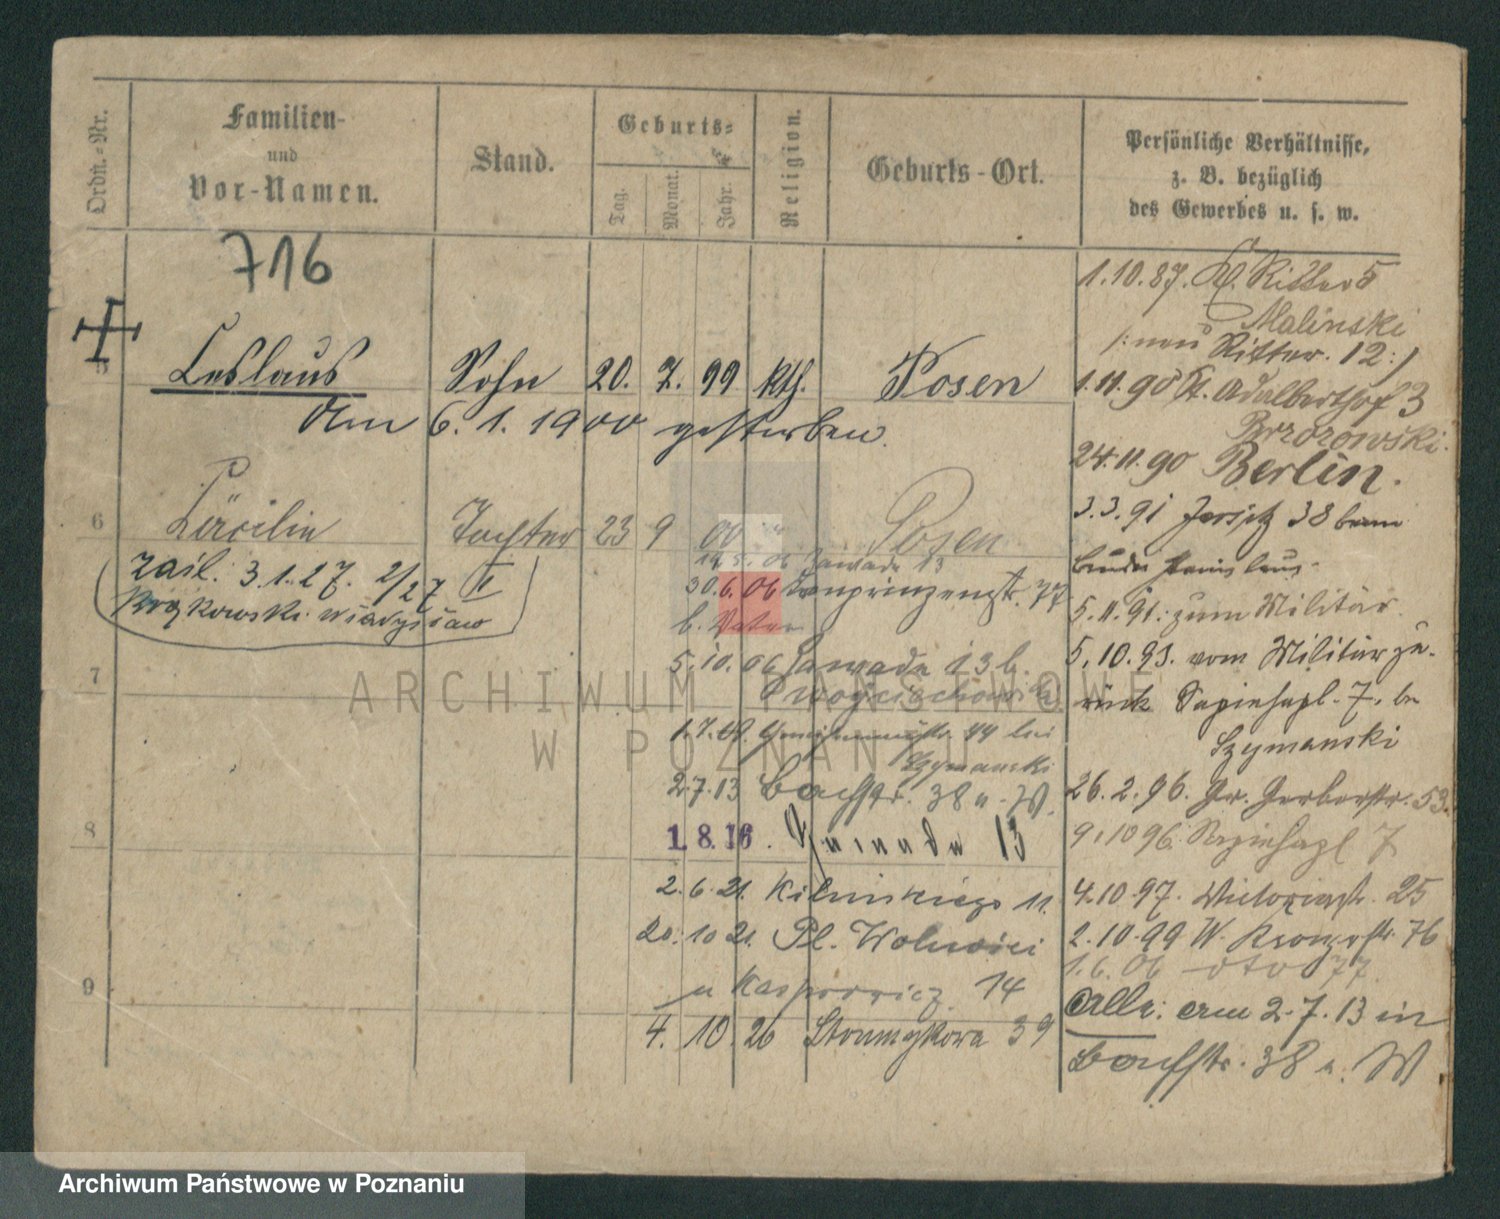 Ordn.-Nr.
Familien-
und
Vor-Namen.
Stand.
Geburts-
Tag.
Monat.
Jahr.
Religion.
Geburts-Ort.
Persönliche Verhältnisse,
z. B. bezüglich
des Gewerbes u. s. w.
716
5 Ceslaus Sohn 20. 7. 99 kth. Posen
Am 6.1.1900 gestorben.
6 Cäcilie Tochter 23 9 00 " Posen
zaśl. 3.1.27. 2/27 II
Kozkowski Władysław
19.5.06 Zawade 13
30.6.06 Kronprinzenstr. 77
b. Vater
5.10.06 Zawade 13 b.
Wojciechowski
7
1.7.
44 bei
Szymanski
2.7.13 Bachstr. 38 u. W.
8
1.8.16.
13
2.6.21. Kilinskiego 11.
20.10.21. Pl. Wolności
u Kasprowicz 14
9
4.10.26 Strumykowa 39
1.10.87. Kl. Ritter 5
Malinski
/: neu Ritter. 12 :/
1.11.90 St. Adalberthof 3
Brzozowski.
24.11.90 Berlin.
3.3.91 Jersitz 38 beim
Bruder Stanislaus.
5.11.91. zum Militär.
5.10.93. vom Militär zu-
rück Sapiehapl. 7. bei
Szymanski
26.2.96. Gr. Gerberstr. 53.
9.10 96. Sapiehapl 7
4.10.97. Victoriastr. 25
2.10.99 W. Kronprstr. 76
1.6.06 dto 77.
Alle: am 2.7.13 in
Bachstr. 38 u. W
ARCHIWUM PAŃSTWOWE
W POZNANIU
Archiwum Państwowe w Poznaniu